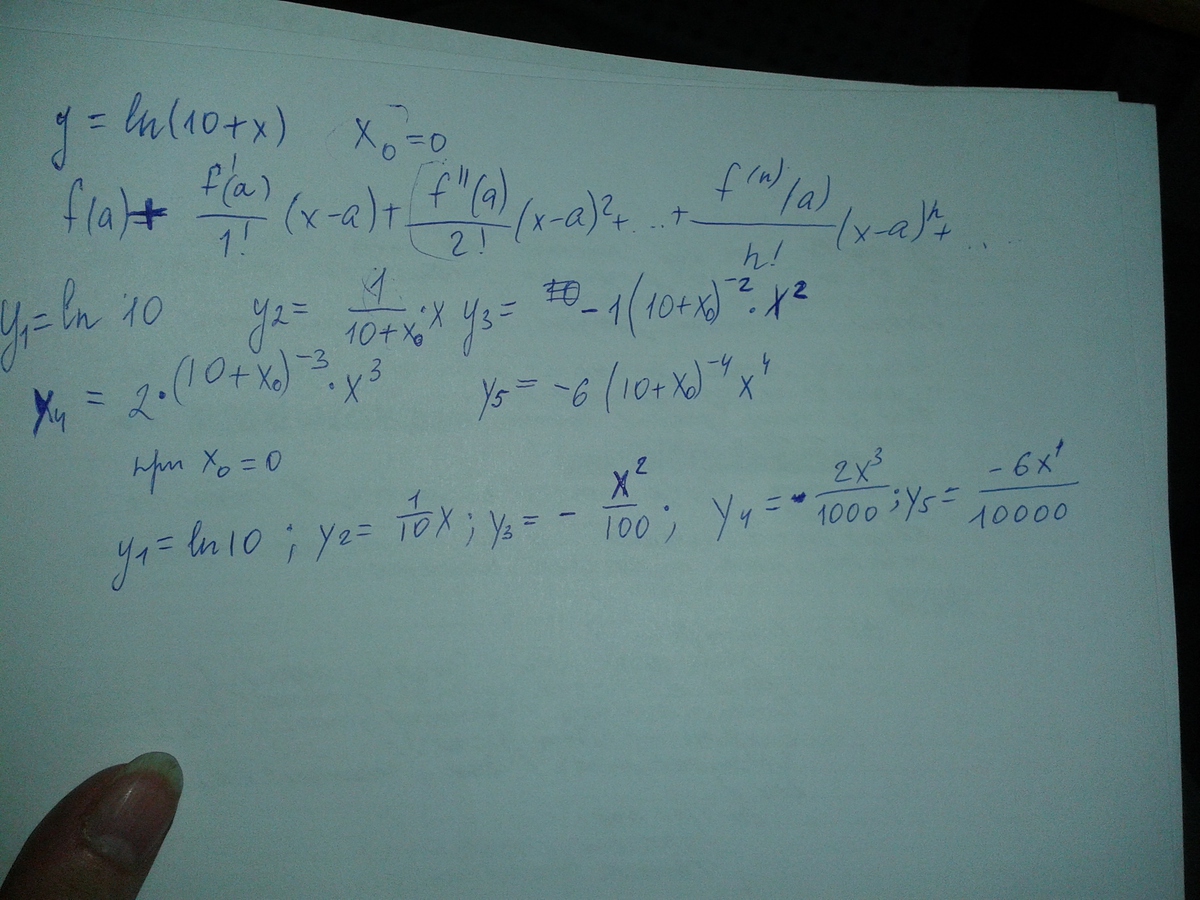 y = ln(10+x) x₀=0
f(a)+ f'(a)/1! (x-a)+ f''(a)/2! (x-a)²+...+ f⁽ⁿ⁾(a)/n! (x-a)ⁿ+...
y₁=ln 10 y₂= 1/(10+x₀)·x y₃= -1(10+x₀)⁻²·x²
y₄ = 2·(10+x₀)⁻³·x³ y₅= -6(10+x₀)⁻⁴x⁴
при x₀=0
y₁=ln10 ; y₂= 1/10 x; y₃= - x²/100; y₄= - 2x³/1000; y₅= -6x⁴/10000